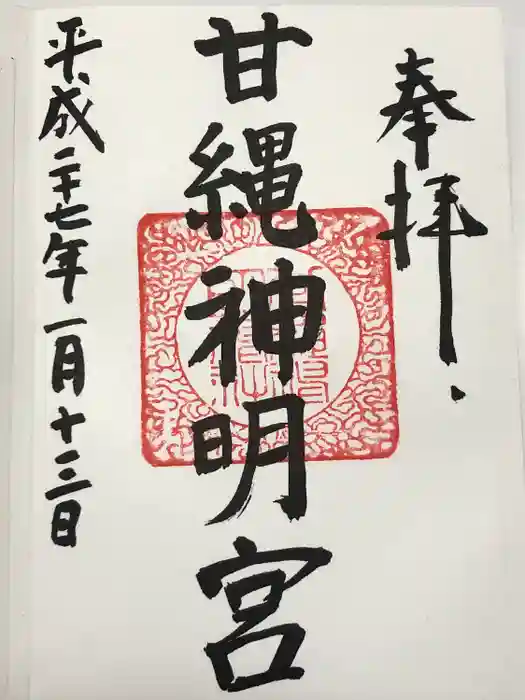 奉拝
甘縄神明宮
平成二十七年一月十三日